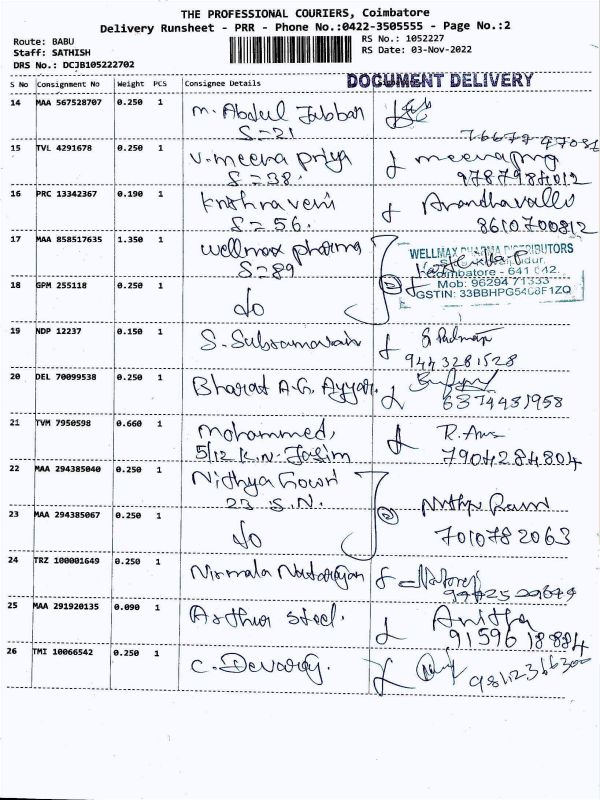 THE PROFESSIONAL COURIERS, Coimbatore
Delivery Runsheet - PRR - Phone No.:0422-3505555 - Page No.:2
Route: BABU
RS No.: 1052227
Staff: SATHISH
RS Date: 03-Nov-2022
DRS No.: DCJB105222702
S No Consignment No Weight PCS Consignee Details
DOCUMENT DELIVERY
14 MAA 567528707 0.250 1 M. Abdul Jabbar
S=21
15 TVL 4291678 0.250 1 V. Meena Priya
S=38.
9787984012
16 PRC 13342367 0.190 1 Krithraveni
S=56.
8610700812
17 MAA 858517635 1.350 1 Wellmax pharma
S=89
WELLMAX PHARMA DISTRIBUTORS
Coimbatore - 641 042.
Mob: 96294 71333
GSTIN: 33BBHPG5408F1ZQ
18 GPM 255118 0.250 1 do
2
19 NDP 12237 0.150 1 S. Subramanian
9443281528
20 DEL 70099538 0.250 1 Bharat A.G. Ayyar.
6374431958
21 TVM 7950598 0.660 1 Mohammed,
5/12 K.N. Jasim
7904284804
22 MAA 294385040 0.250 1 Nithya Gowri
23 S.N.
23 MAA 294385067 0.250 1 do
2
7010782063
24 TRZ 100001649 0.250 1 Nirmala Natarajan
25 MAA 291920135 0.090 1 Arthur steel.
Anitha
91596 18884
26 TMI 10066542 0.250 1 C. Devaraj.